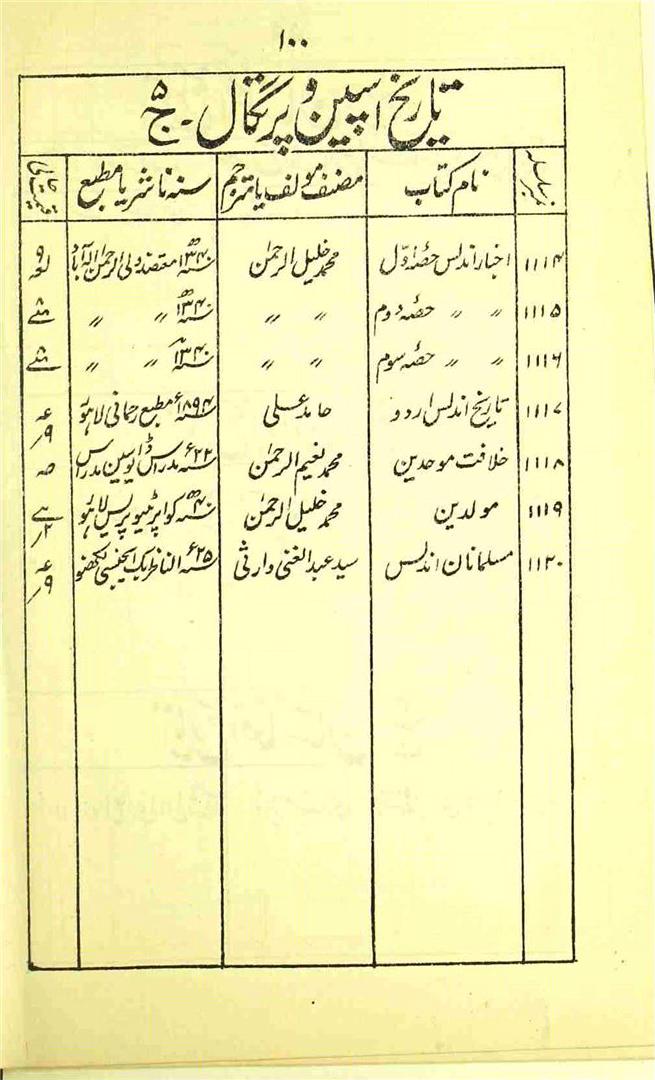 ۱۰۰
تاریخ اسپین و پرتگال - ج ۵
نمبر سلسلہ نام کتاب مصنف مولف یا مترجم سنہ ناشر یا مطبع قیمت حالی
۱۱۱۴ اخبار اندلس حصہ اول محمد خلیل الرحمٰن سنہ ۱۳۴۰ھ معتضد ولی الرحمٰن الہ آباد
۱۱۱۵ 〃 〃 حصہ دوم 〃 〃 سنہ ۱۳۴۰ھ 〃 〃
۱۱۱۶ 〃 〃 حصہ سوم 〃 〃 سنہ ۱۳۴۰ھ 〃 〃
۱۱۱۷ تاریخ اندلس اردو حامد علی سنہ ۱۸۹۴ء مطبع رحمانی لاہور
۱۱۱۸ خلافت موحدین محمد نعیم الرحمٰن سنہ ۶۲۲ مدراس ڈایوسین مدراس
۱۱۱۹ مولدین محمد خلیل الرحمٰن سنہ ۴۰ھ کواپرٹیو پریس لاہور
۱۱۲۰ مسلمانان اندلس سید عبد الغنی وارثی سنہ ۲۵ء الناظر بک ایجنسی لکھنو